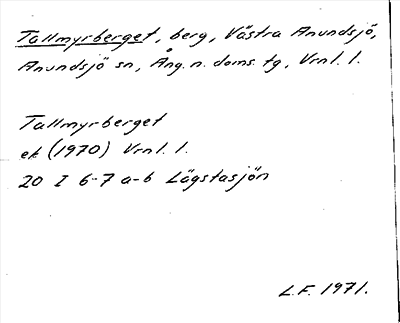 Tallmyrberget, berg, Västra Anundsjö,
Anundsjö sn, Ång. n. doms. tg, Vrnl. l.
Tallmyrberget
ek (1970) Vrnl. l.
20 I 6-7 a-b Lägstasjön
L.F. 1971.